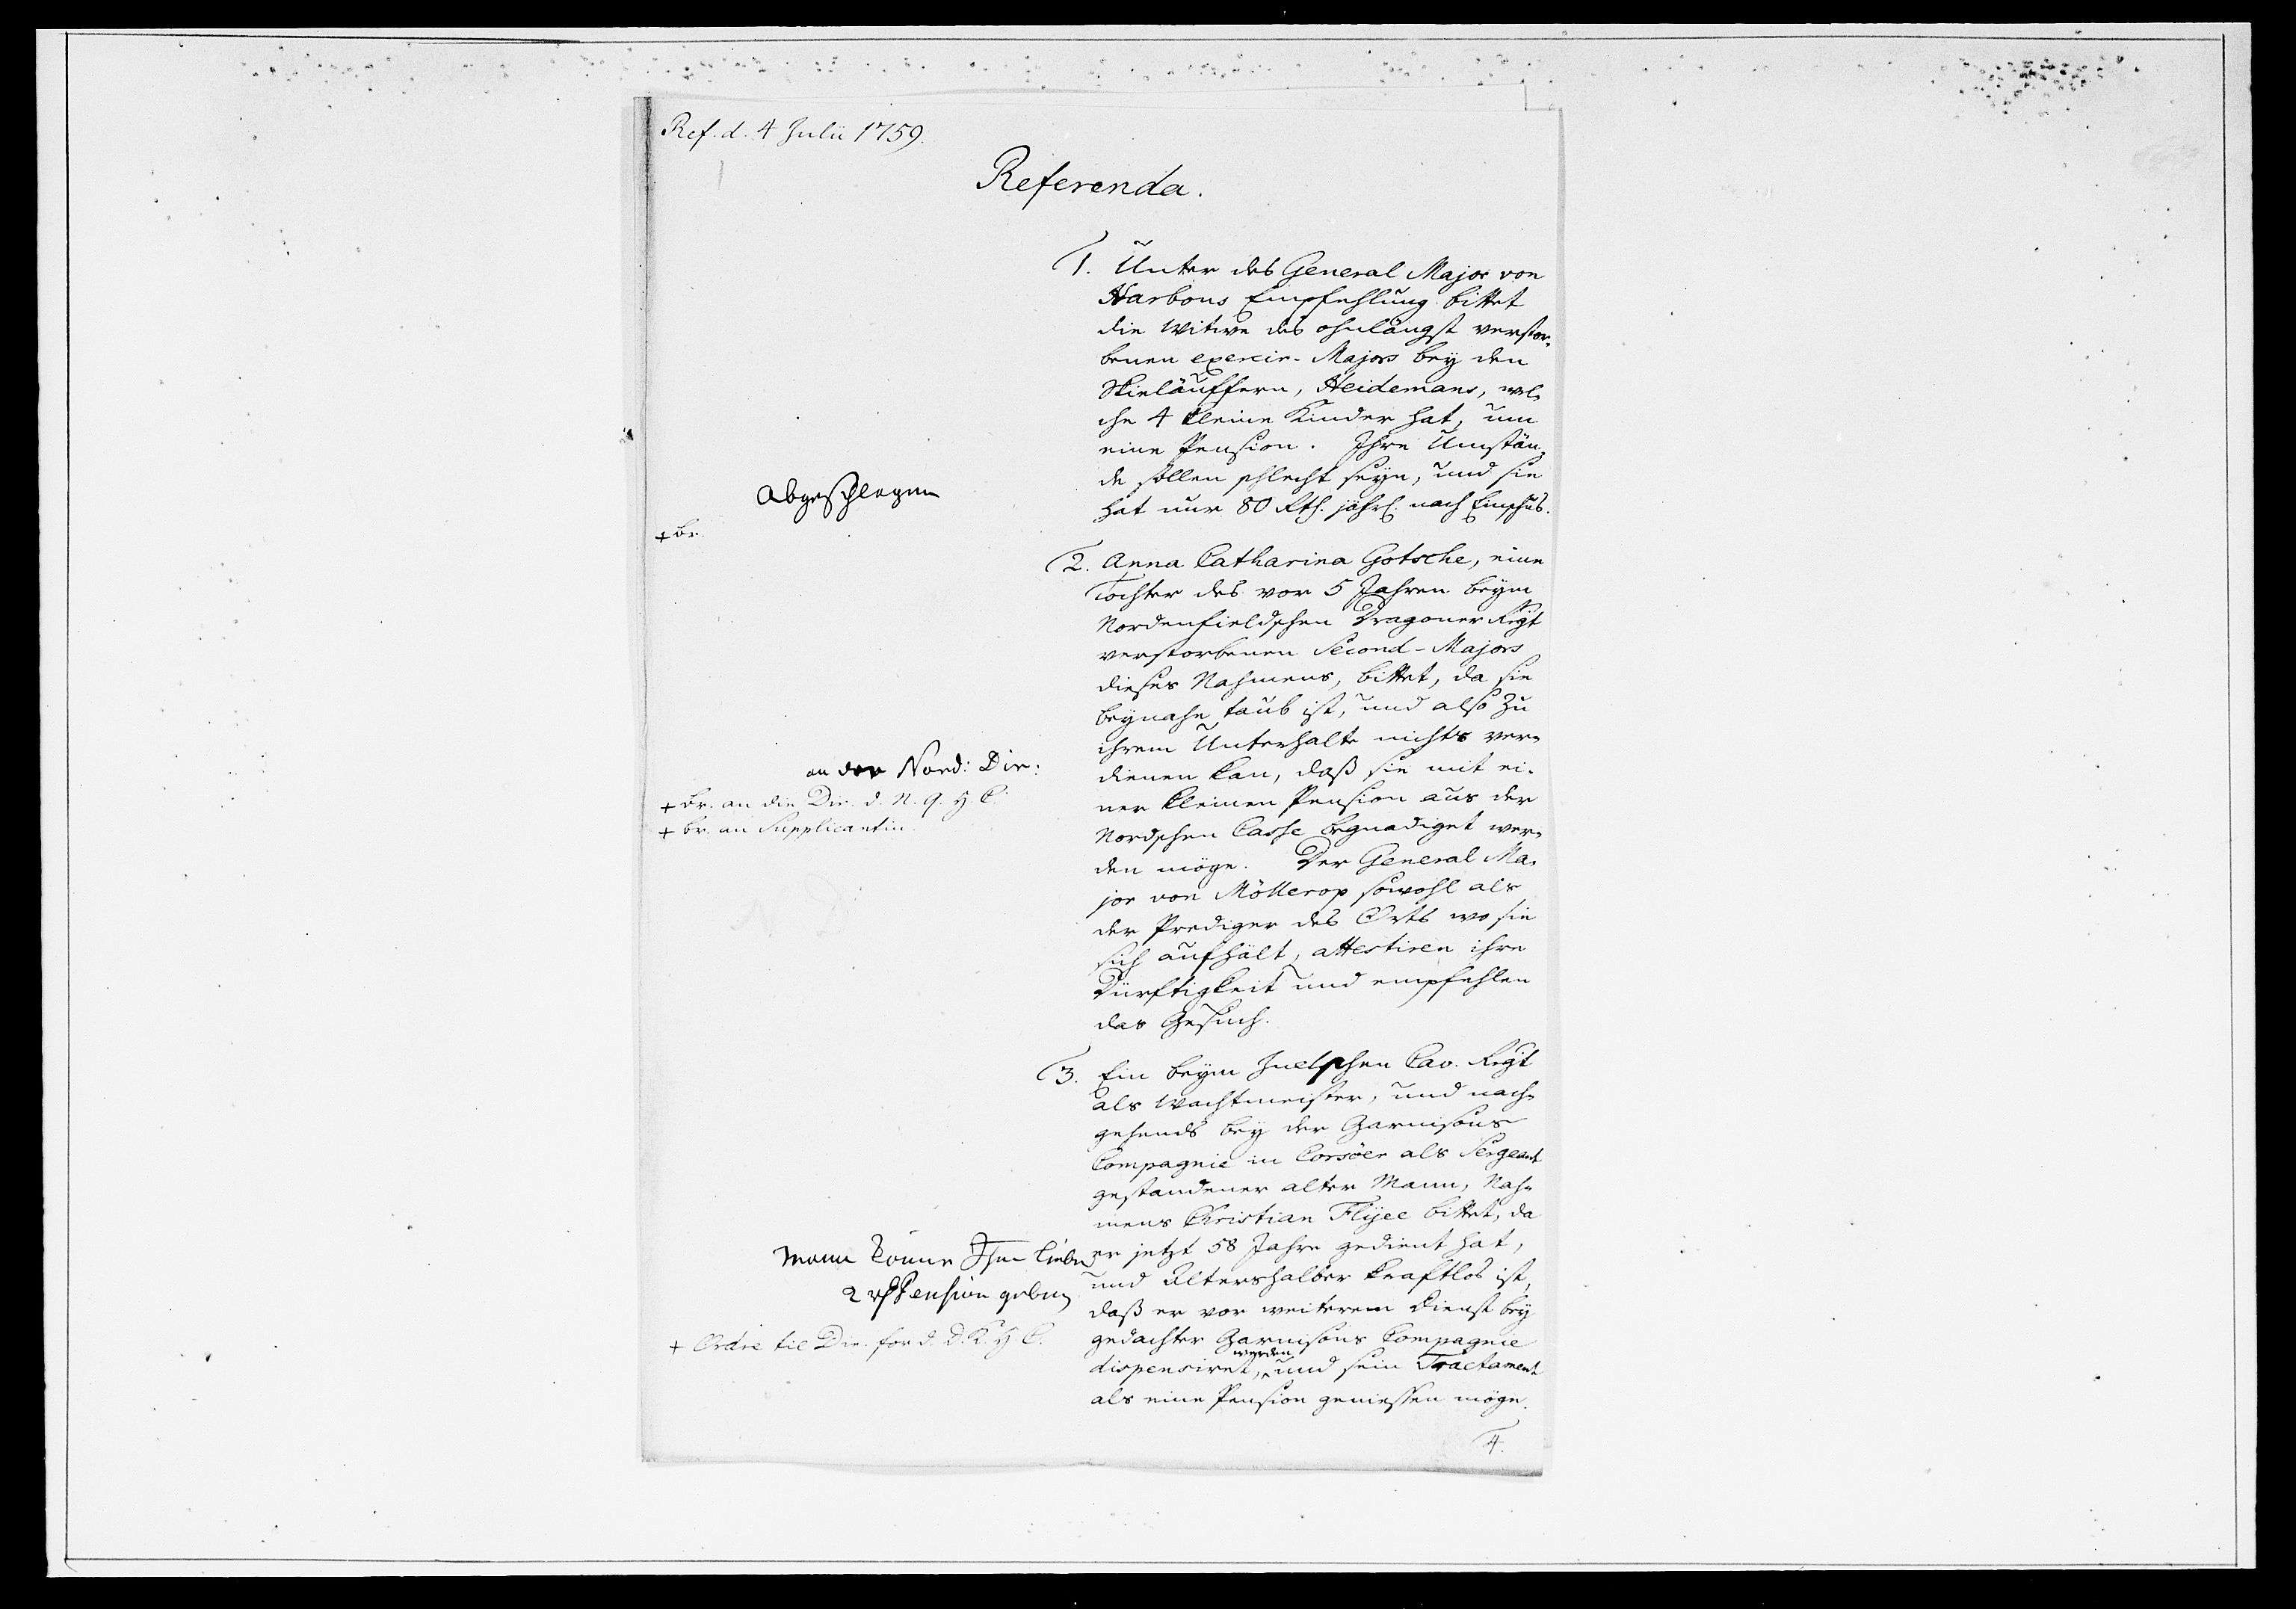 Ref. d. 4 Julii 1759.
Referenda.
1. Unter des General Major von
Harbous Empfehlung bittet
die Witwe des ohnlängst verstor-
benen exercir-Majors bey den
Skieläuffern, Heidemans, wel-
che 4 kleine Kinder hat, um
eine Pension. Ihre Umstän-
de sollen schlecht seyn, und sie
hat nur 80 Rth. jährl. nach Einschuß.
Abgeschlagen
+ Br.
2. Anna Catharina Gotsche, eine
Tochter des vor 5 Jahren beym
Nordenfieldschen Dragoner Regt
verstorbenen Second-Majors
dieses Nahmens, bittet, da sie
beynahe taub ist, und also zu
ihrem Unterhalte nichts ver-
dienen kan, daß sie mit ei-
ner kleinen Pension aus der
Nordschen Casse begnadiget wer-
den möge. Der General Ma-
jor von Möllerop sowohl als
der Prediger des Orts wo sie
sich aufhält, attestiren ihre
Dürftigkeit und empfehlen
das Gesuch.
an der Nord: Dir:
+ Br. an die Dir. d. N. q. H C.
+ br. an Supplicantin.
3. Ein beym Juelschen Cav. Regt
als Wachtmeister, und nach-
gehends bey der Garnisons
Compagnie in Corsöer als Sergeant
gestandener alter Mann, Nah-
mens Christian Flyee bittet, da
er jetzt 58 Jahre gedient hat,
und Altershalber kraftlos ist,
daß er vor weiterem Dienst bey
gedachter Garnisons Compagnie
dispensiret, werden und sein Tractament
als eine Pension geniessen möge.
Mann könne Ihm lieber
2 rh Pension geben
+ Ordre til Dir. for d. D. K. H C.
4.